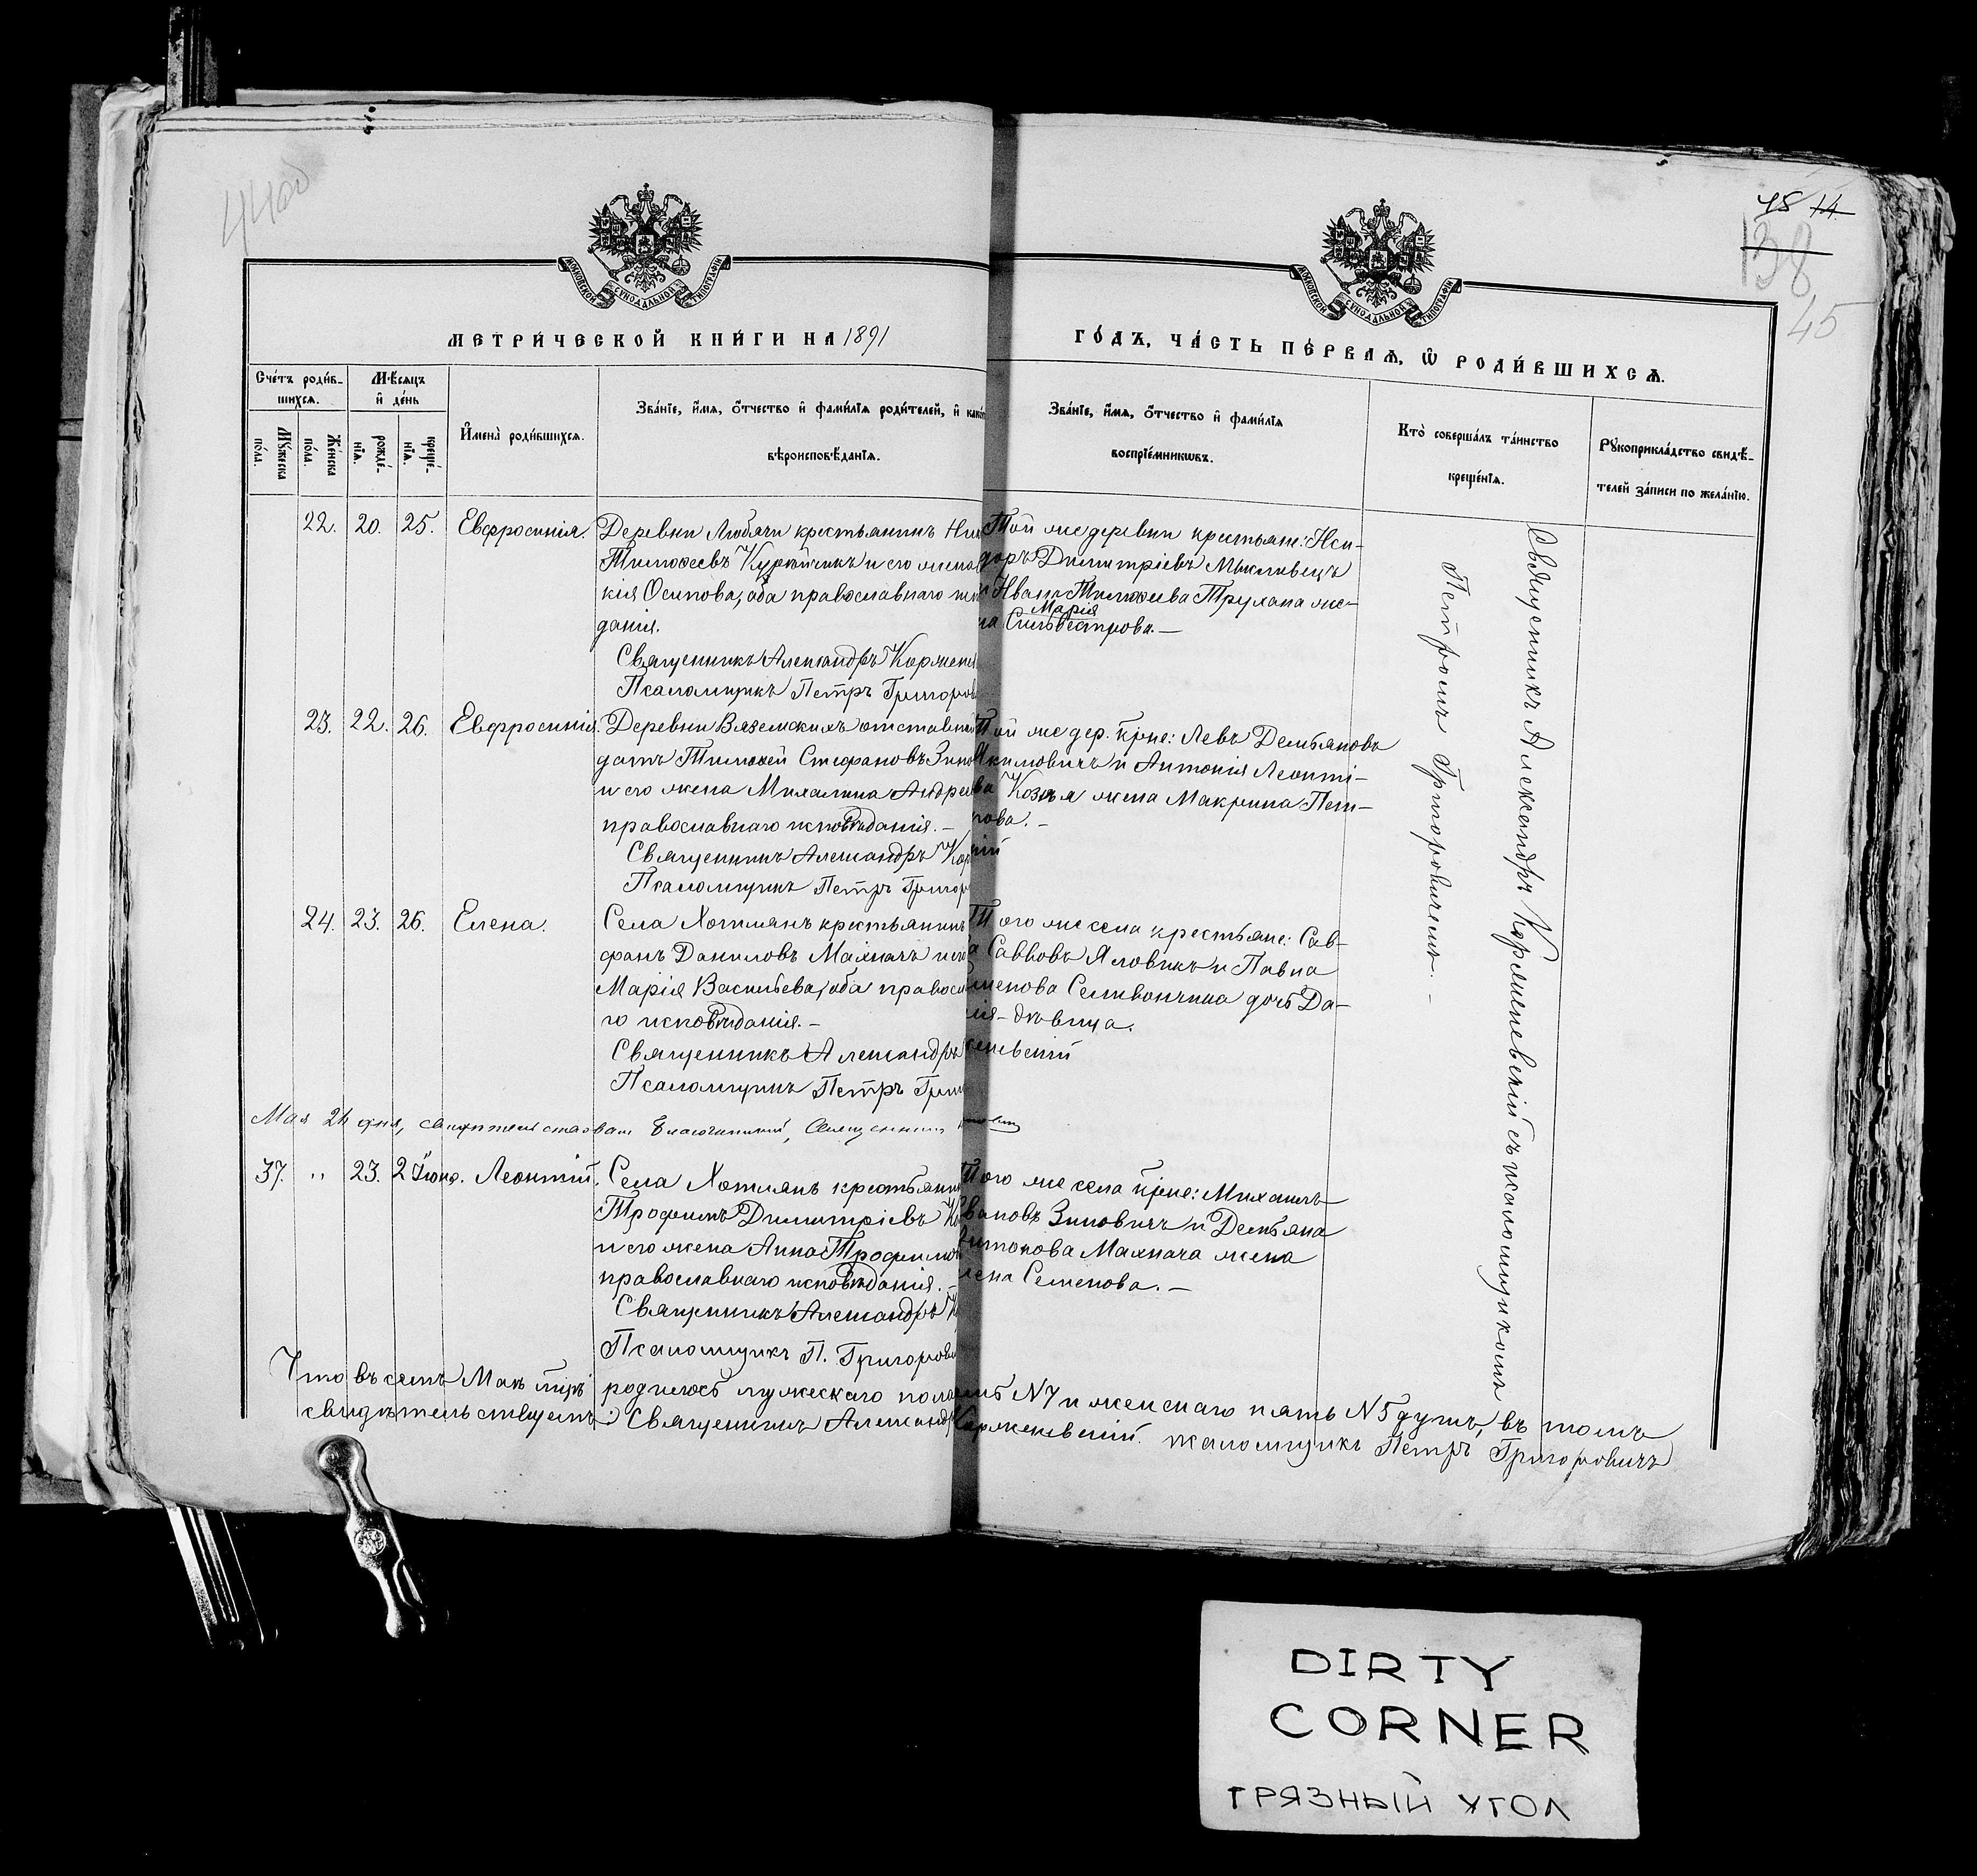 44об
45 14.
138
45
МОСКОВСКОЙ СѴНОДАЛЬНОЙ ТИПОГРАФІИ
МОСКОВСКОЙ СѴНОДАЛЬНОЙ ТИПОГРАФІИ
МЕТРИ́ЧЕСКОЙ КНИ́ГИ НА 1891
ГО́ДЪ, ЧА́СТЬ ПЕ́РВАѦ, Ѡ҆ РОДИ́ВШИХСѦ.
Сче́тъ роди́в-
шихся.
Мꙋ́жеска по́ла.
Же́нска по́ла.
Мѣ́сяцъ и҆ де́нь
рожде́-нїя.
креще́-нїя.
И҆мена̀ роди́вшихся.
Зва́нїе, и҆́мя, ѻ҆́тчество и҆ фами́лїя роди́телей, и҆ како́
вѣроисповѣ́данїя.
Зва́нїе, и҆́мя, ѻ҆́тчество и҆ фами́лїя
воспрїе́мникѡвъ.
Кто̀ соверша́лъ та́инство
креще́нїя.
Рꙋкоприкла́дство свидѣ́-
телей за́писи по жела́нїю.
22. 20. 25. Евфросинія. Деревни Любячи крестьянинъ
Тимоѳеевъ Курьянчикъ и его жена
кія Осипова, оба православнаго
данія.
Священникъ Александръ Корженев
Псаломщикъ Петръ Григоров
Той же деревни крестьяне: Иси-
доръ Димитріевъ Мысливецъ
и Ивана Тимоѳеева Трухана же-
Марія
на Сильвестрова. —
23. 22. 26. Евфросинія. Деревни Вяземскихъ отставной
датъ Тимоѳей Стефановъ Зинов
и его жена Михалина Андреев
православнаго исповѣданія. —
Священникъ Александръ Кор
Псаломщикъ Петръ Григор
Той же дер. крне: Левъ Демьяновъ
Якимовичъ и Антонія Леонті-
ева Козья жена Макрина Пет-
рова. —
кій
24. 23. 26. Елена. Села Хотлянъ крестьянинъ
фанъ Даниловъ Махначъ и его
Марія Васильева, оба правосл
го исповѣданія. —
Священникъ Александръ
Псаломщикъ Петръ Григ
Того же села крестьяне: Сав-
а Савковъ Яловикъ и Павла
Семенова Селивончика дочь Да-
рія - дѣвица.
женевскій
Мая 24 дня, свидѣтельствовалъ Благочинный, Священникъ
37. " 23. 2 Іюня. Леонтій. Села Хотлянъ крестьянин
Трофимъ Димитріевъ
и его жена Анна Трофимов
православнаго исповѣданія. —
Священникъ Александръ К
Псаломщикъ П. Григорови
Того же села крне: Михаилъ
Ивановъ Зиновичъ и Демьяна
Антонова Махнача жена
лена Семенова. —
Священникъ Александръ Корженевскій съ псаломщикомъ
Петромъ Григоровичемъ. —
Что въ семъ Маѣ мцѣ родилось мужескаго пола семь N 7 и женскаго пять N 5 душъ, въ томъ
свидѣтельствуемъ: Священникъ Александръ Корженевскій. псаломщикъ Петръ Григоровичъ
DIRTY
CORNER
ГРЯЗНЫЙ УГОЛ